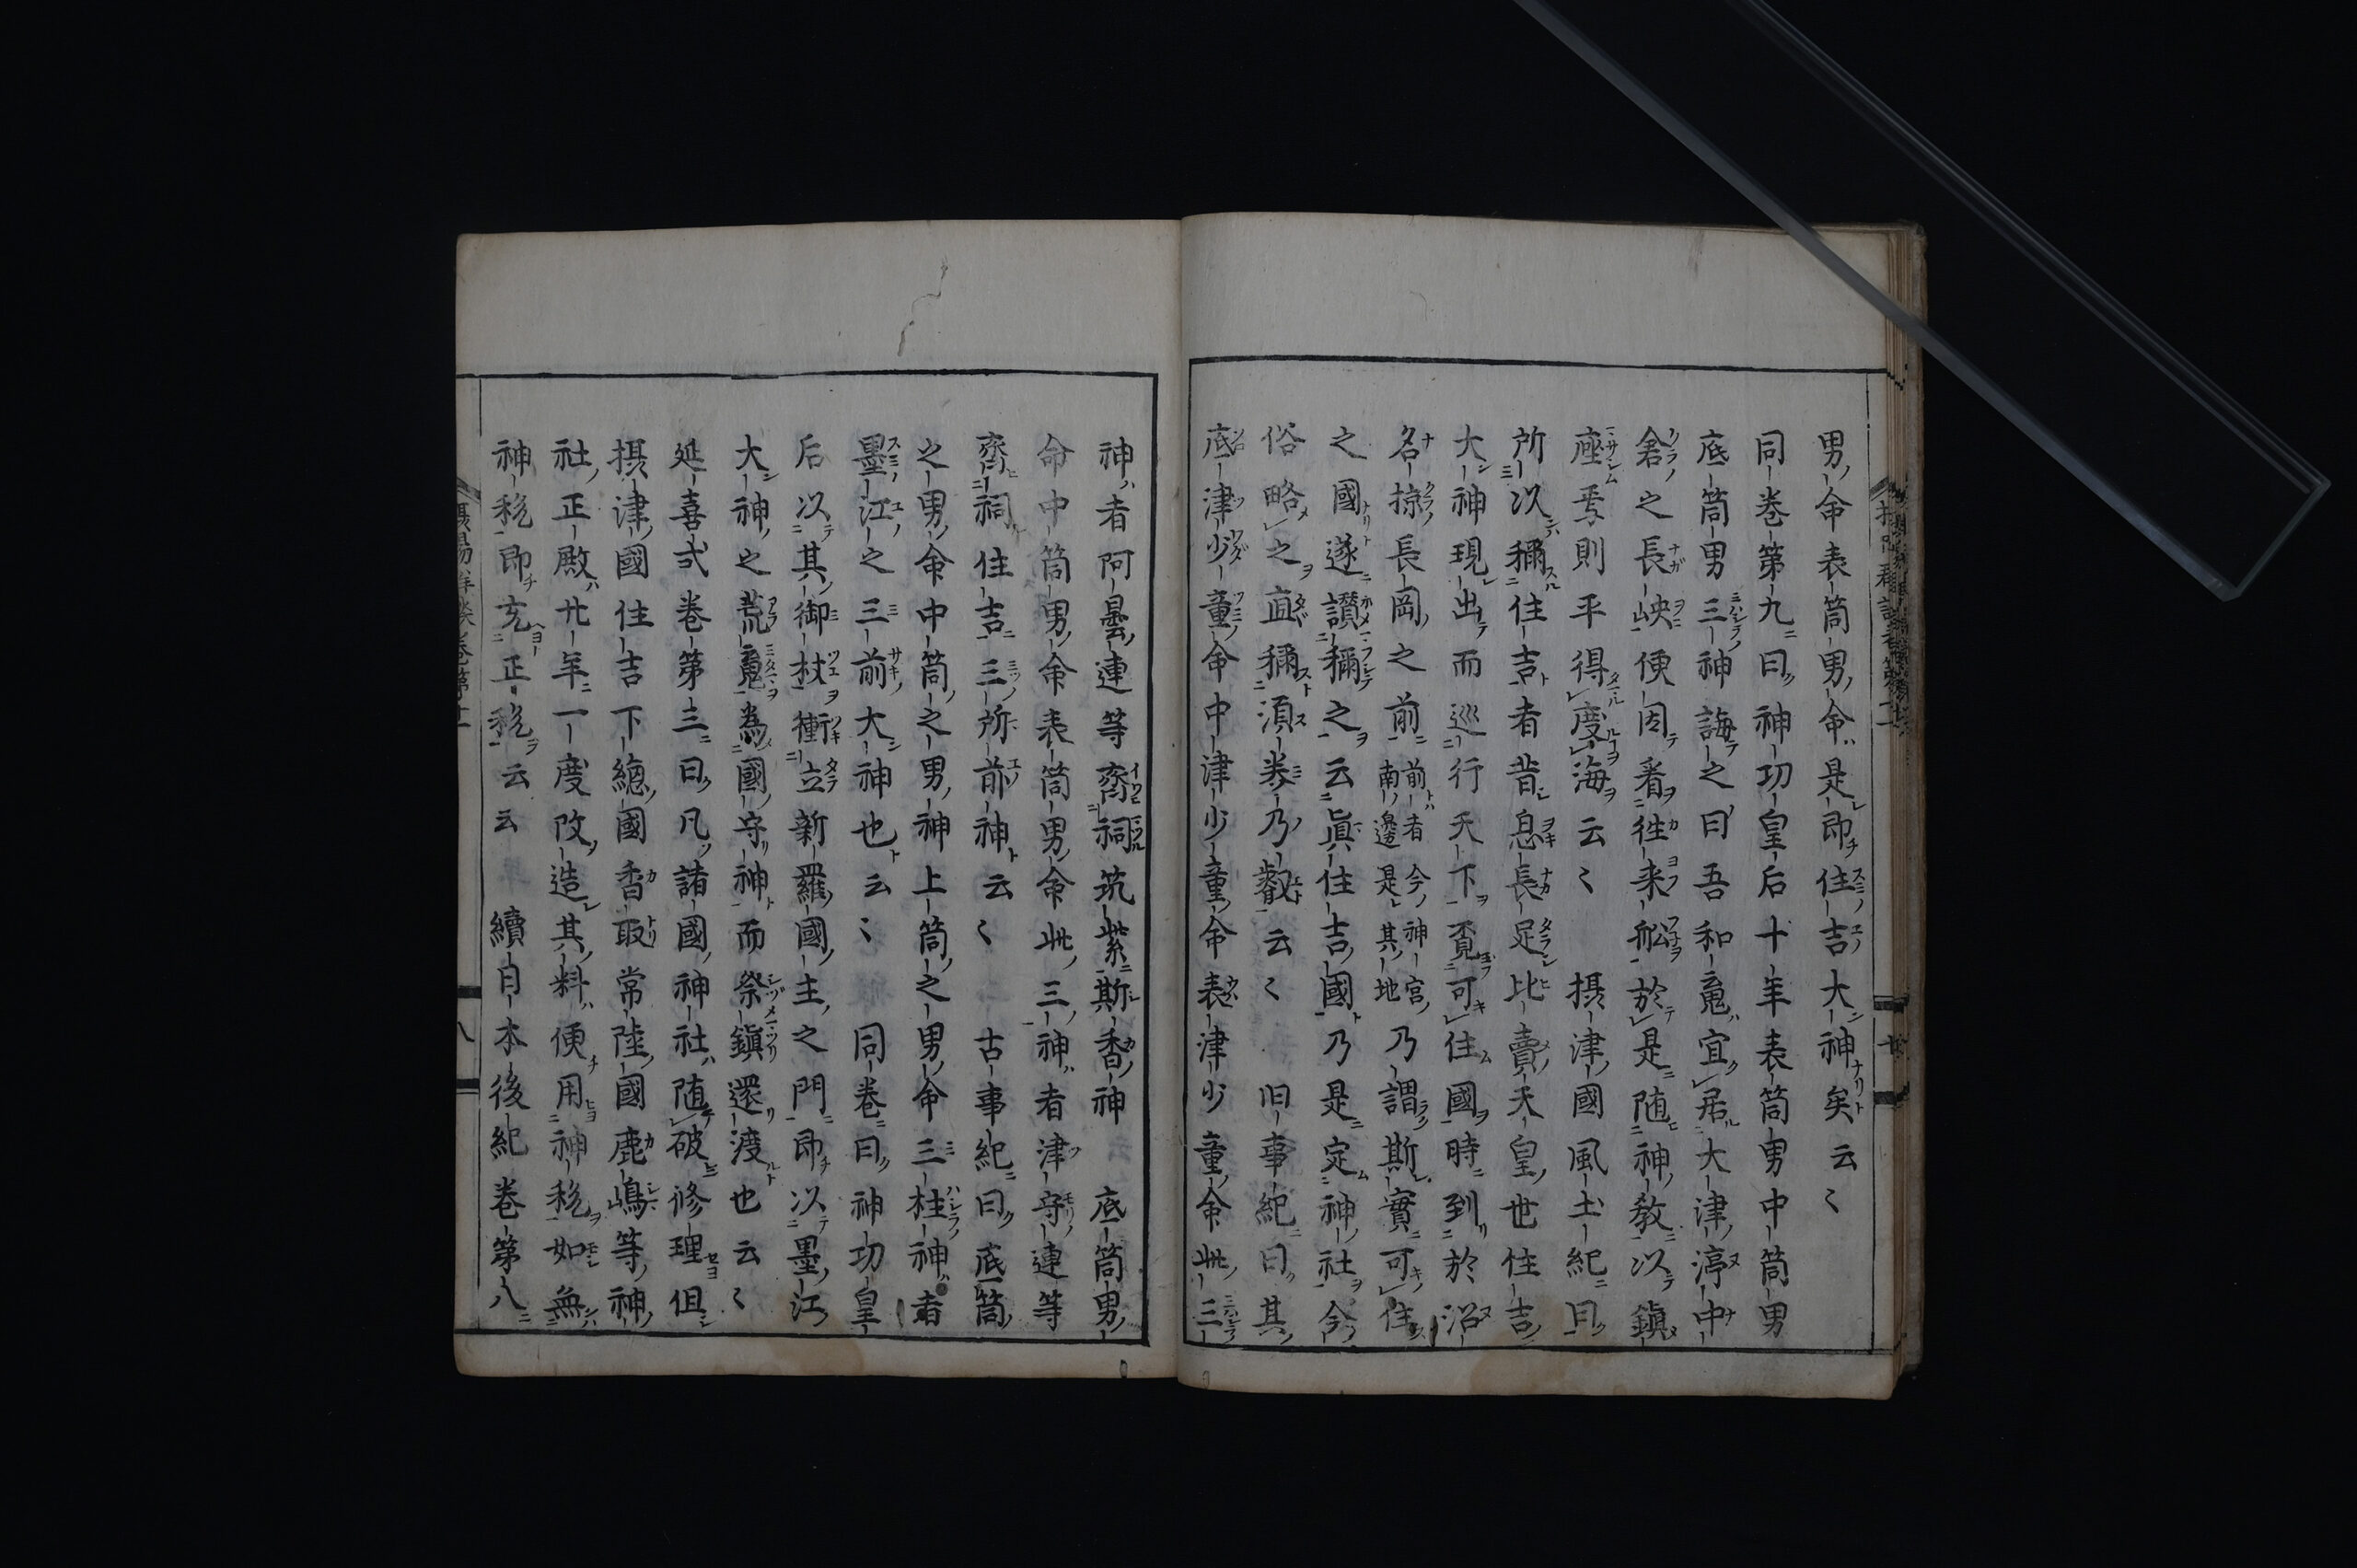 男命表筒男命是即住吉大神矣云〻
同卷第九曰神功皇后十年表筒男中筒男
底筒男三神誨之曰吾和䰟宜居大津渟中
倉之長峡便因看徃来船於是随神教以鎮
座焉則平得度海云〻　摂津國風土紀曰
所以稱住吉者昔息長足比賣天皇世住吉
大神現出而巡行天下覔可住國時到於沼
名掠長岡之前前者今神宮南邊是其地乃謂斯實可住
之國遂讃稱之云眞住吉國乃是定神社今
俗略之直稱須美乃叡云〻　旧事紀曰其
底津少童命中津少童命表津少童命此三
神者阿曇連等齋祠筑紫斯香神　底筒男
命中筒男命表筒男命此三神者津守連等
齋祠住吉三所前神云〻　古事紀曰底筒
之男命中筒之男神上筒之男命三柱神者
墨江之三前大神也云〻　同卷曰神功皇
后以其御杖衝立新羅國主之門即以墨江
大神之荒䰟為國守神而祭鎮還渡也云〻
延喜式卷第三曰凡諸國神社随破修理但
摂津國住吉下總國香取常陸國鹿嶋等神
社正殿廿年一度改造其料便用神税如無
神税即充正税云云　續日本後紀卷第八
八